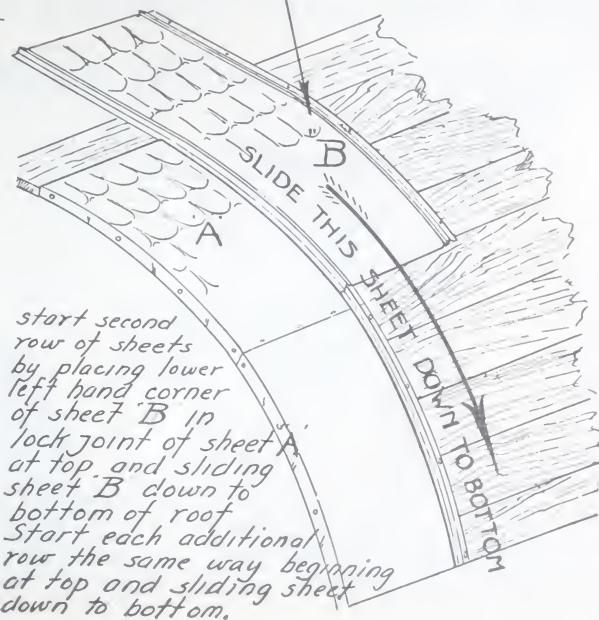 B
SLIDE THIS SHEET DOWN TO BOTTOM
A
start second
row of sheets
by placing lower
left hand corner
of sheet "B" in
lock joint of sheet "A"
at top and sliding
sheet "B" down to
bottom of roof
Start each additional
row the same way beginning
at top and sliding sheet
down to bottom.